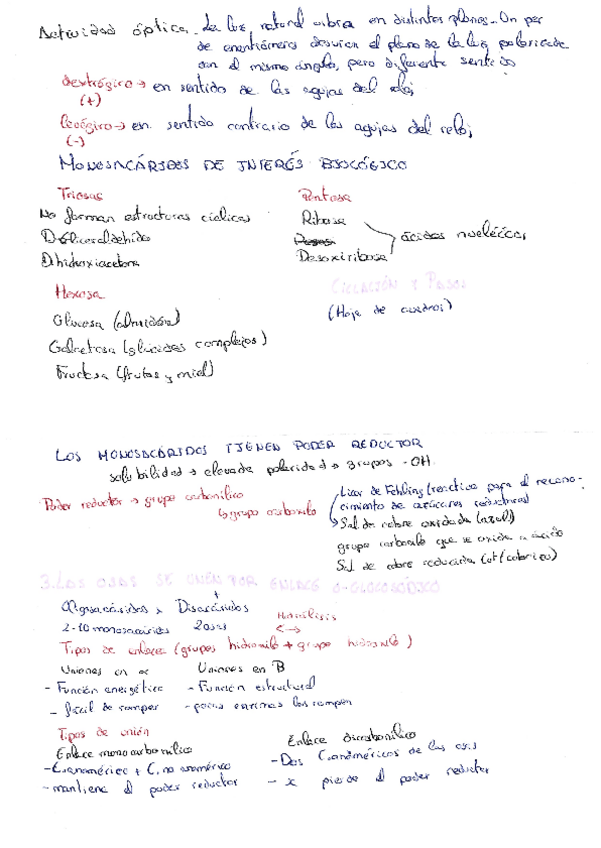 Actividad óptica - La luz natural vibra en distintos planos. Un par
de enantiómeros desvían el plano de la luz polarizada
con el mismo ángulo, pero diferente sentido
dextrógiro → en sentido de las agujas del reloj
(+)
levógiro → en sentido contrario de las agujas del reloj
(-)
MONOSACÁRIDOS DE INTERÉS BIOLÓGICO
Triosas
No forman estructuras cíclicas
D-Gliceraldehído
Dihidroxiacetona
Pentosa
Ribosa
Desoxirribosa
ácidos nucléicos
Hexosa
Glucosa (almidón)
Galactosa (glúcidos complejos)
Fructosa (frutas y miel)
CICLACIÓN Y
(Hoja de cuadros)
LOS MONOSACÁRIDOS TIENEN PODER REDUCTOR
solubilidad → elevada polaridad → grupos -OH
Poder reductor → grupo carbonílico
↳ grupo carboxilo
Licor de Fehling (reactivo para el recono-
cimiento de azúcares reductores)
Sal de cobre oxidada (azul)
grupo carbonilo que se oxida a ácido
Sal de cobre reducida
3. LAS OSAS SE UNEN POR ENLACE O-GLUCOSÍDICO
Oligosacáridos Disacáridos
2-10 monosacáridos 2 osas
Hidrólisis
Tipos de enlaces (grupos hidroxilo + grupo hidroxilo)
Uniones en α
- Función energética
- fácil de romper
Uniones en B
- Función estructural
- pocas enzimas las rompen
Tipos de unión
Enlace monocarbonílico
- C.anomérico + C. no anomérico
- mantiene el poder reductor
Enlace dicarbonílico
- Dos C.anoméricos de las osas
- x pierde el poder reductor